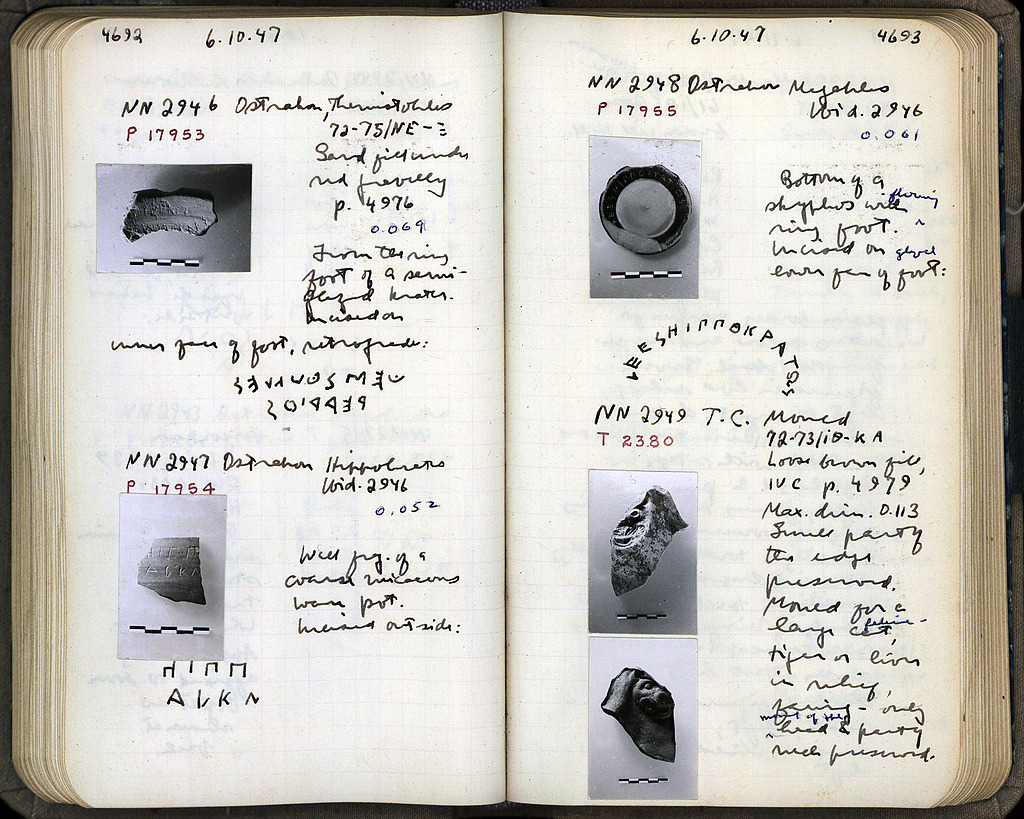 4692 6.10.47
NN 2946 Ostrakon, Themistokles
P 17953
72-75/ΝΕ-Ξ
Sand fill under
red gravelly
p. 4976
0.069
From the ring
foot of a semi-
glazed krater.
Incised on
inner face of foot, retrograde:
NN 2947 Ostrakon Hippokrates
P 17954
Ibid. 2946
0.052
Wall frg. of a
coarse micaceous
ware pot.
Incised outside:
ΗΙΠΠ
ΑLΚΝ
6.10.47 4693
NN 2948 Ostrakon Megakles
P 17955
Ibid. 2946
0.061
Bottom of a
skyphos with flaring
ring foot.
Incised on glazed
lower face of foot:
ΗΙΠΠΟΚΡΑΤΟS
NN 2949 T.C. Mould
T 2380
72-73/ΙΘ-ΚΑ
Loose brown fill,
IV C p. 4979
Max. dim. 0.113
Small part of
the edge
preserved.
Mould for a
large cat, feline-
tiger or lion
in relief,
facing - only
most of the
head & part of
neck preserved.